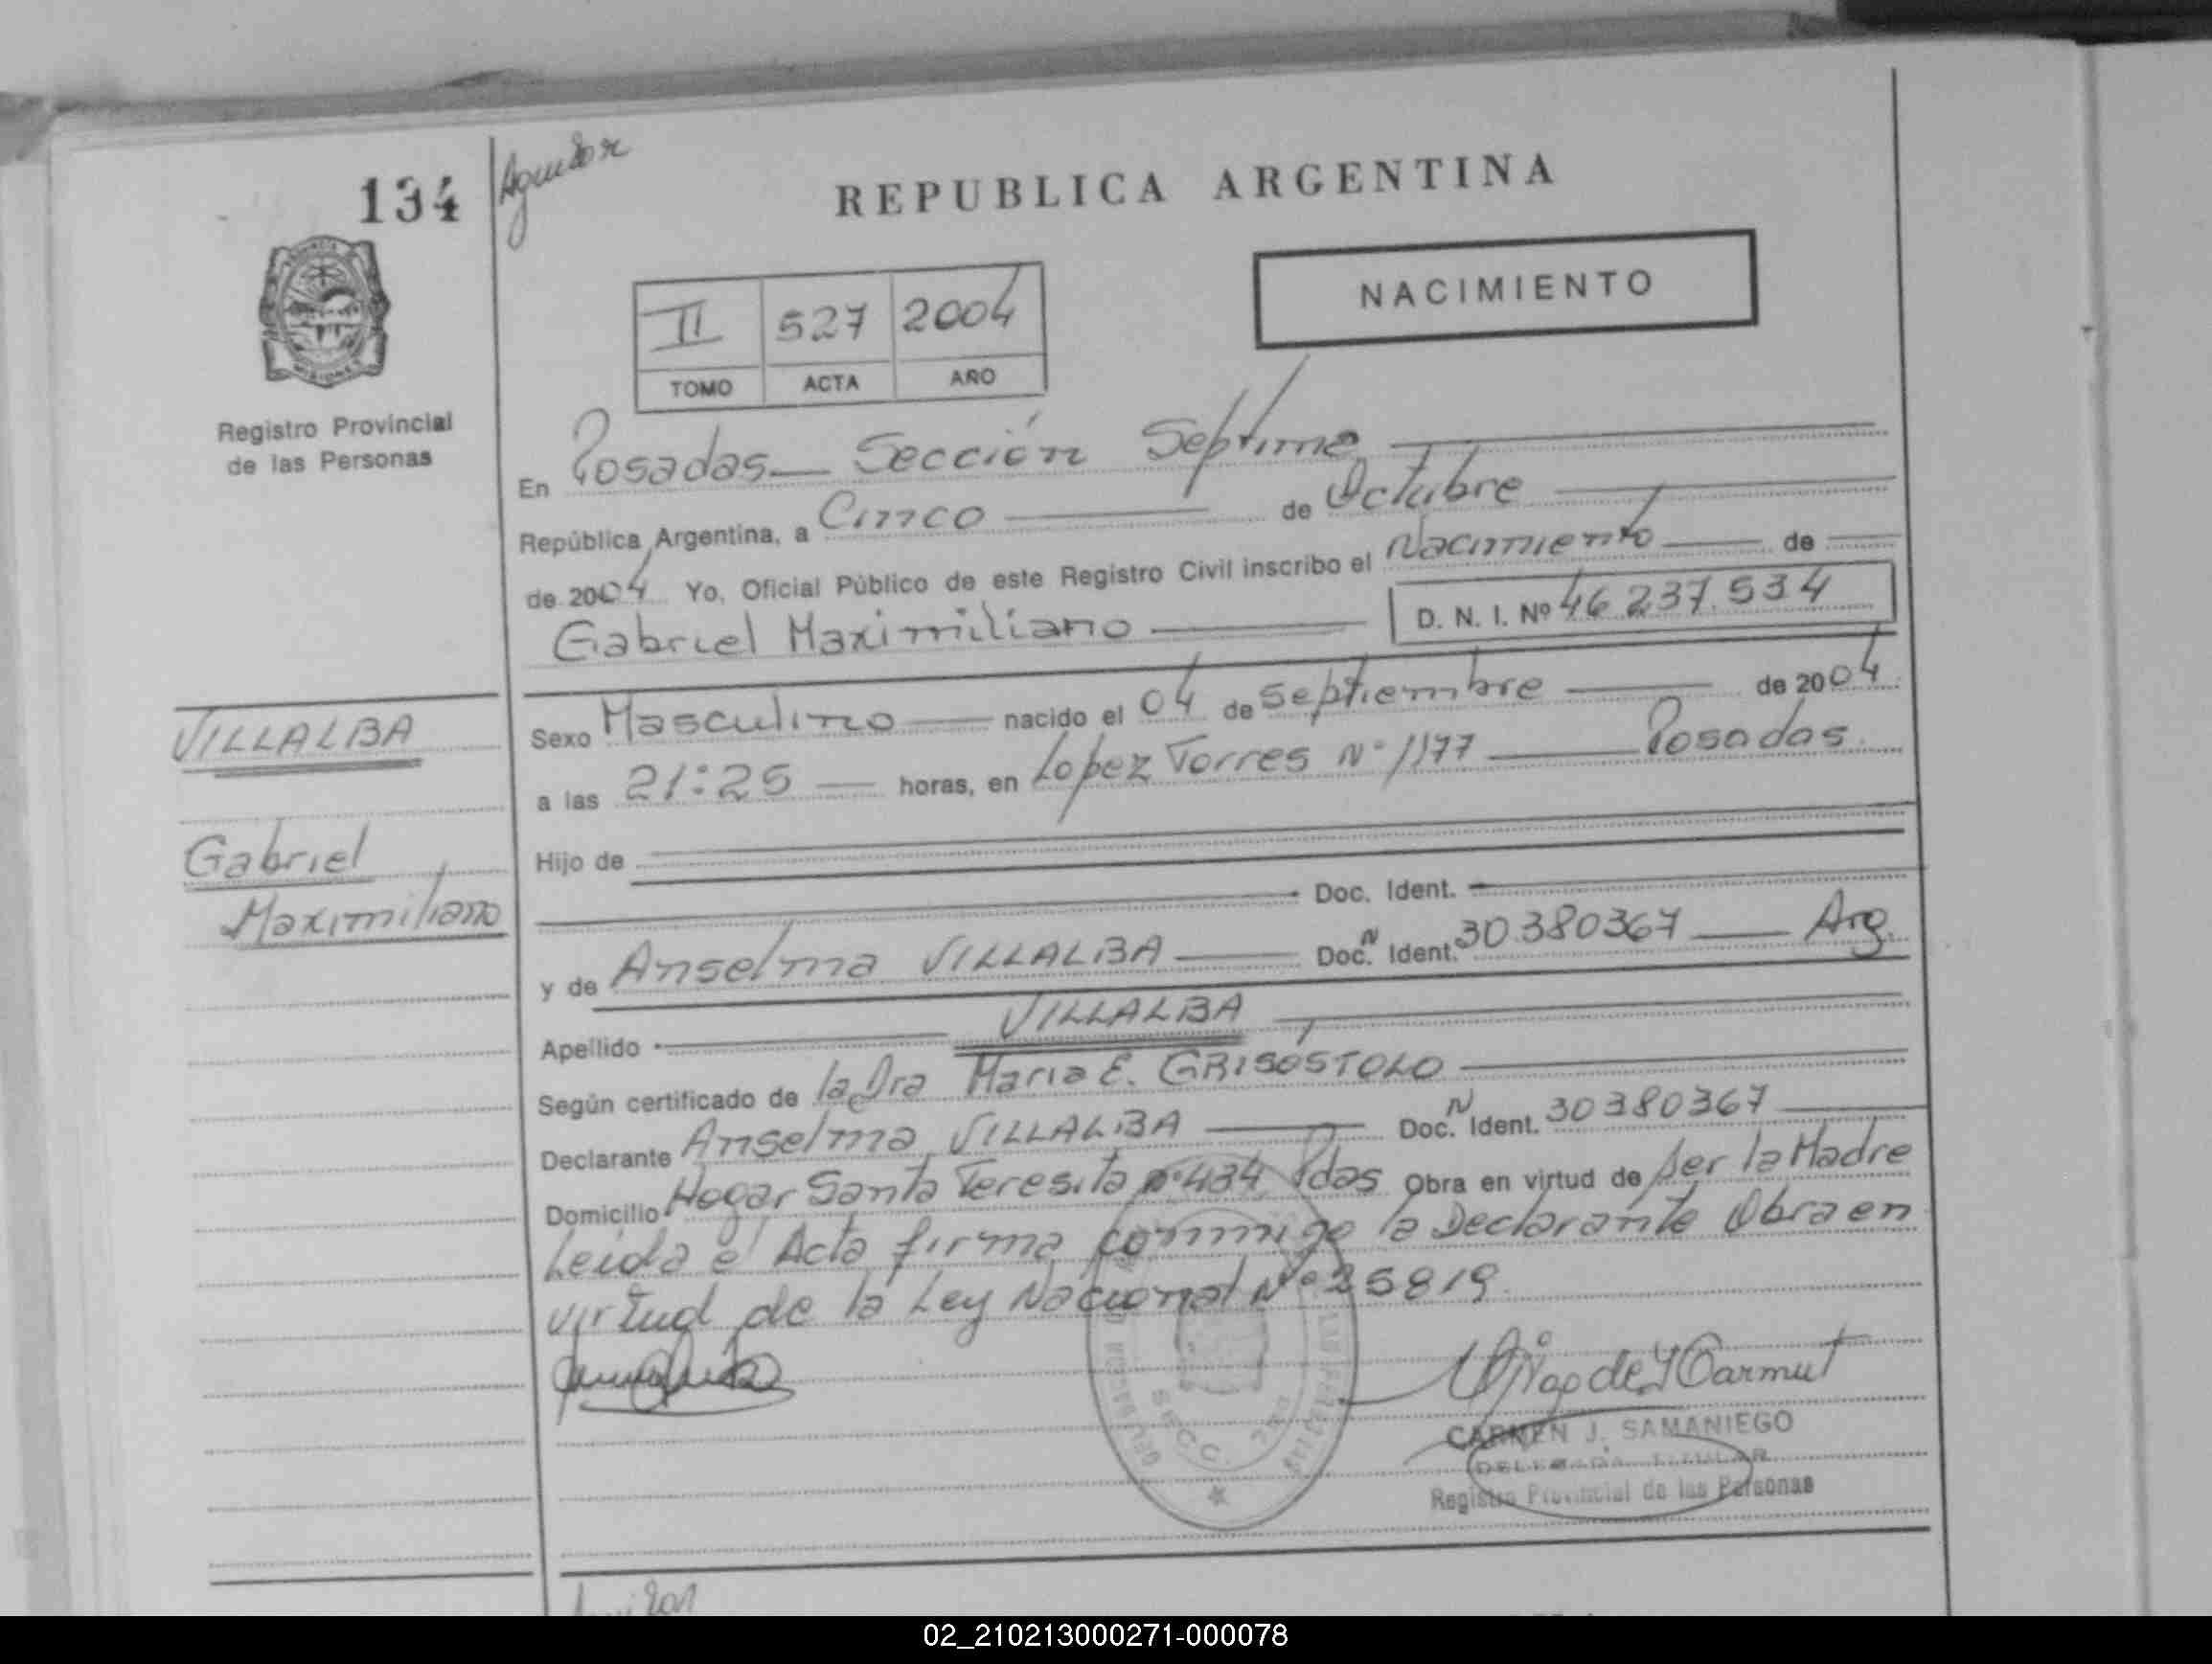 134
Aguilar
REPUBLICA ARGENTINA
NACIMIENTO
II 527 2004
TOMO ACTA AÑO
Registro Provincial
de las Personas
En Posadas Sección Septima
República Argentina, a Cinco de Octubre
de 2004 Yo, Oficial Público de este Registro Civil inscribo el Nacimiento de
Gabriel Maximiliano D. N. I. Nº 46 237.534
VILLALBA
Gabriel
Maximiliano
Sexo Masculino nacido el 04 de Septiembre de 2004
a las 21:25 horas, en Lopez Torres Nº 1177 Posadas.
Hijo de
Doc. Ident.
y de Anselma VILLALBA Doc. N Ident. 30 380367 Arg.
Apellido VILLALBA
Según certificado de la Dra Maria E. GRISÓSTOLO
Declarante Anselma VILLALBA Doc. N Ident. 30380367
Domicilio Hogar Santa Teresita nº 434 Pdas Obra en virtud de ser la Madre
Leida el Acta firma conmigo la Declarante Obra en
virtud de la Ley Nacional Nº 25819
CARMEN J. SAMANIEGO
DELEGADA TITULAR
Registro Provincial de las Personas
02_210213000271-000078